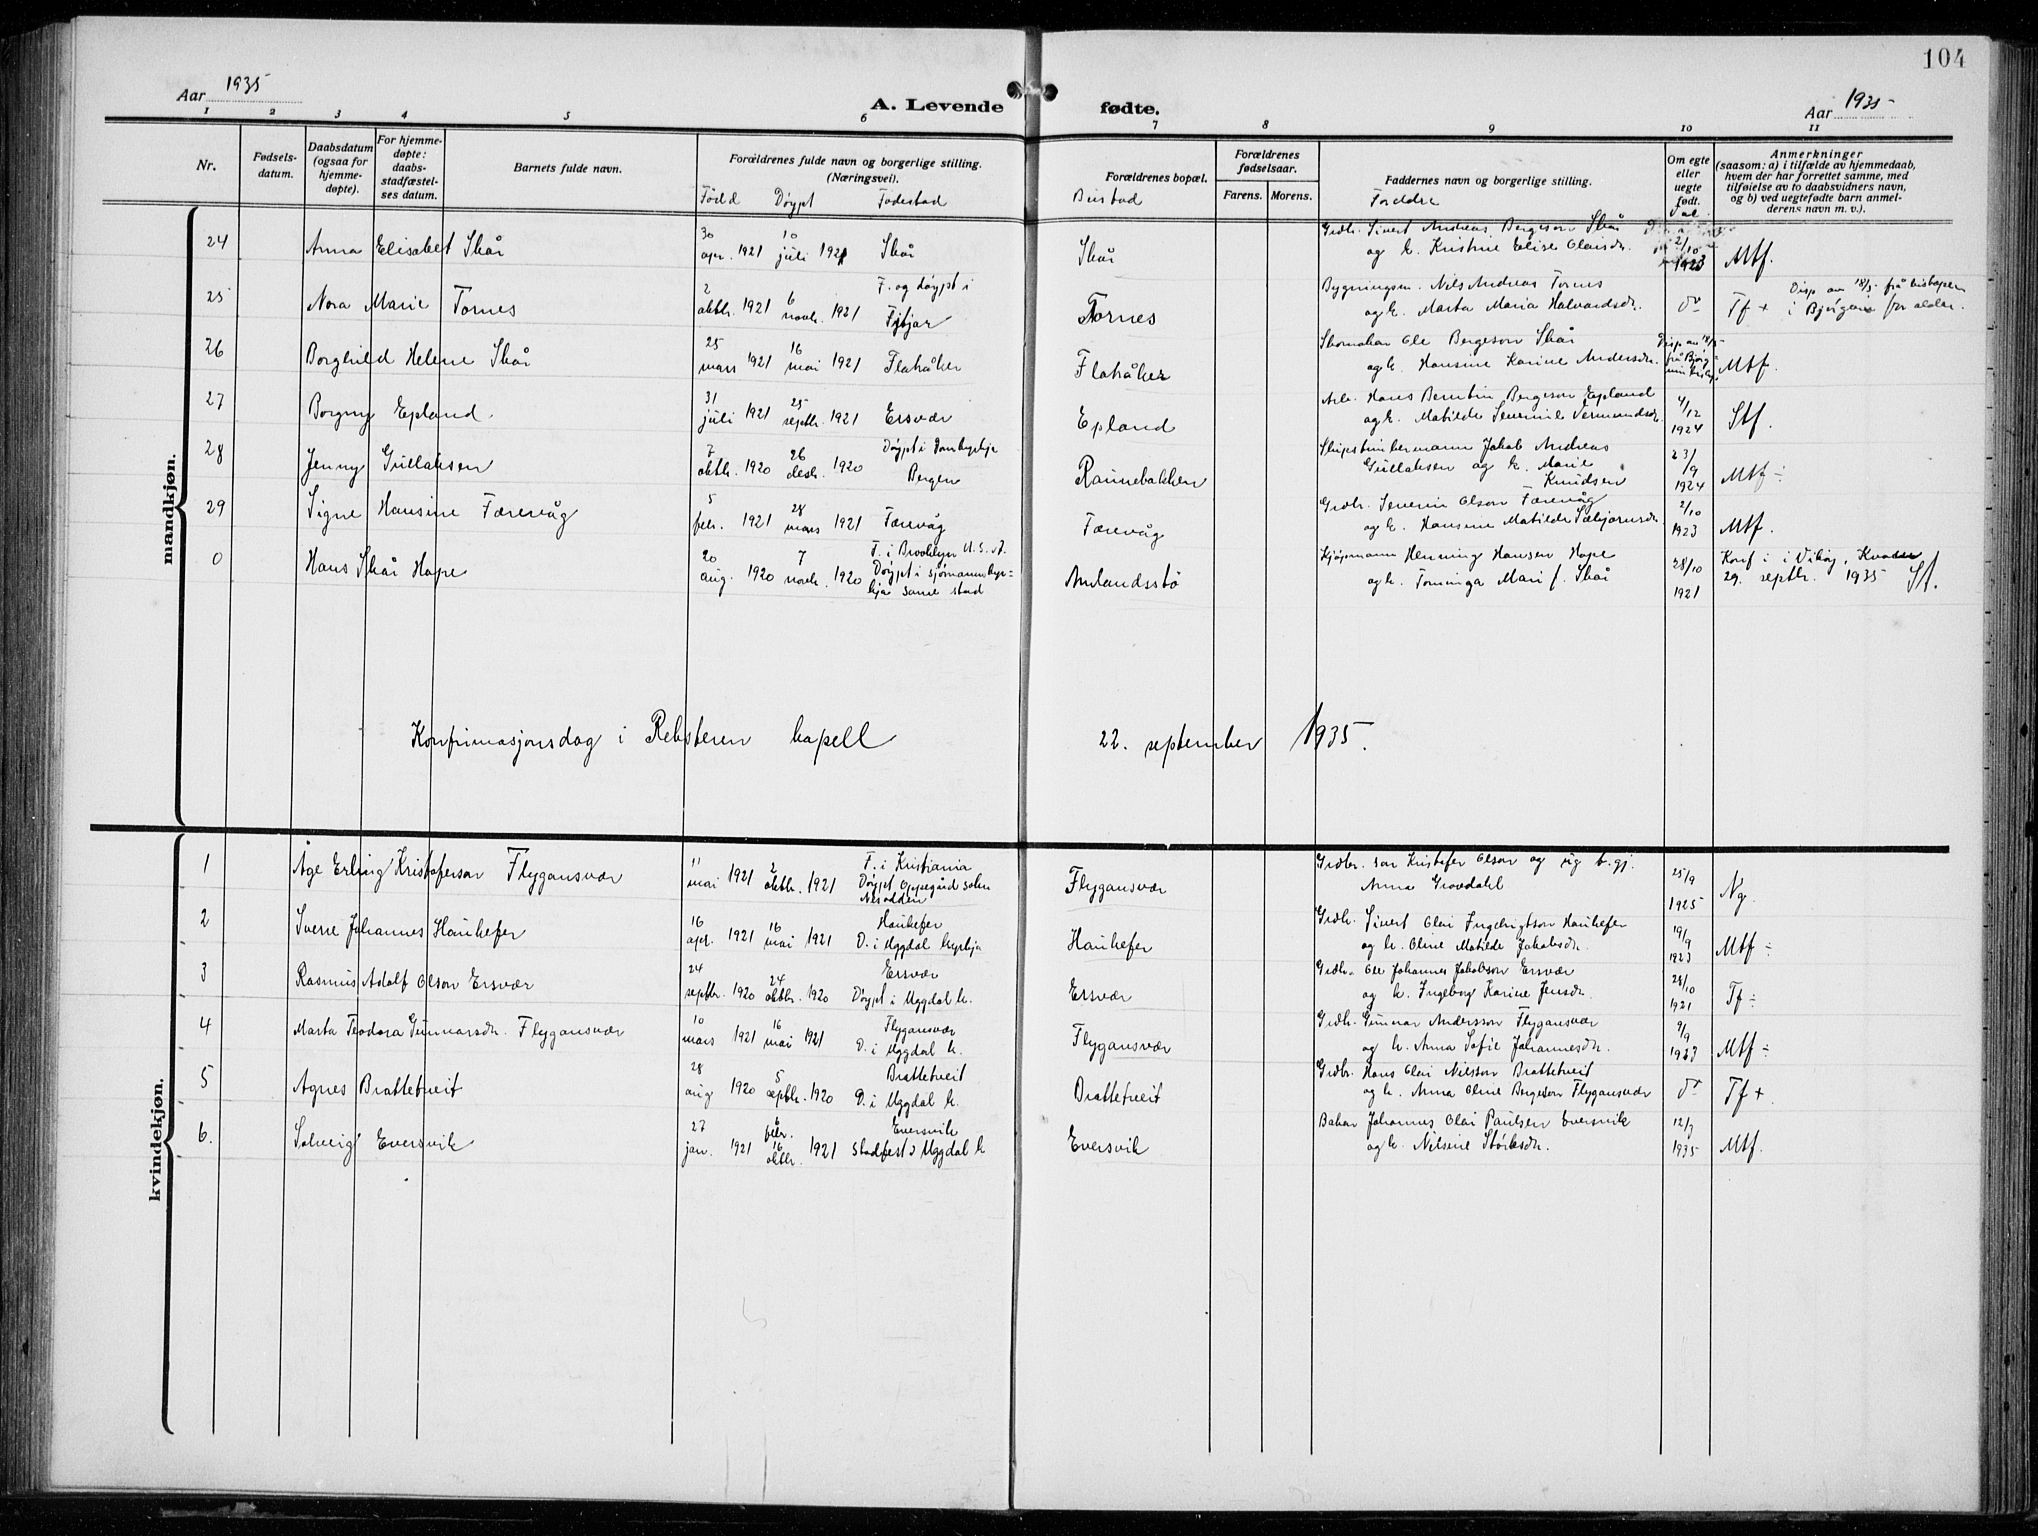 104
Aar 1935
A. Levende fødte.
Aar 1935
1 2 3 4 5 6 7 8 9 10 11
Nr.
Fødsels-
datum.
Daabsdatum
(ogsaa for
hjemme-
døpte).
For hjemme-
døpte:
daabs-
stadfæstel-
ses datum.
Barnets fulde navn.
Forældrenes fulde navn og borgerlige stilling.
(Næringsvei).
Född Døypt Fødestad
Forældrenes bopæl.
Bustad
Forældrenes
fødselsaar.
Farens. Morens.
Faddernes navn og borgerlige stilling.
Foreldre
Om egte
eller
uegte
født.
Anmerkninger
(saasom: a) i tilfælde av hjemmedaab,
hvem der har forrettet samme, med
tilføielse av to daabsvidners navn,
og b) ved uegtefødte barn anmel-
derens navn m. v.).
mandkjøn.
24 Anna Elisabet Skår 30 apr. 1921 10 juli 1921 Skår Skår Grdbr. Sivert Andreas Bergeson Skår
og k. Kristine Elise Olaisdr. 2/10 1923 Mtf.
25 Nora Marie Tornes 2 oktbr. 1921 6 novbr. 1921 F. og døypt i
Fitjar Tornes Bygningsm. Nils Andreas Tornes
og k. Marta Maria Halvardsdr. do Tf + Disp. av 18/5 frå biskopen
i Bjørgvin for alder.
26 Borghild Helene Skår 25 mars 1921 16 mai 1921 Flatråker Flatråker Skomakar Ole Bergeson Skår
og k. Hansine Karine Andersdr. Mtf.
27 Borgny Epland 31 juli 1921 25 septbr. 1921 Ersvær Epland Arb. Hans Berntin Bergeson Epland
og k. Matilde Severine Vermundsdr. 4/12 1924 Stf.
28 Jenny Gullaksen 7 oktbr. 1920 26 desbr. 1920 Døypt i Domkyrkja
Bergen Raunebakken Skipstimbermann Jakob Andreas
Gullaksen og k. Marie
Knudsen 23/9 1924 Mtf ÷
29 Signe Hansine Færevåg 5 febr. 1921 28 mars 1921 Færevåg Færevåg Grdbr. Severin Olson Færevåg
og k. Hansine Matilde Sæbjørnsdr. 2/10 1923 Mtf.
0 Hans Skår Hope 20 aug. 1920 7 novbr. 1920 F. i Brooklyn U.S.A.
Døypt i sjømannskyr-
kja same stad Anlandsstø Kjøpmann Henning Hansen Hope
og k. Tominga Marie f. Skår 28/10 1921 Konf. i Vikøy, Kvam
29. septbr. 1935 Sf.
Konfirmasjonsdag i Reksteren kapell 22. september 1935.
kvindekjøn.
1 Åge Erling Kristoferson Flygansvær 11 mai 1921 2 oktbr. 1921 F. i Kristiania
Døypt Oppegård sokn
Nesodden Flygansvær Grdbr. son Kristofer Olson og pig b. gj.
Anna Grovdahl 25/9 1925 Ng.
2 Sverre Johannes Haukefer 16 apr. 1921 16 mai 1921 Haukefer
D. i Uggdal kyrkja Haukefer Grdbr. Sivert Olai Ingebrigtson Haukefer
og k. Oline Matilde Jakobsdr. 19/9 1923 Mtf ÷
3 Rasmus Adolf Olson Ersvær 24 septbr. 1920 24 oktbr. 1920 Ersvær
Døypt i Uggdal k. Ersvær Grdbr. Ole Johannes Jakobson Ersvær
og k. Ingeborg Karine Jensdr. 28/10 1921 Tf ÷
4 Marta Teodora Gunnarsdr. Flygansvær 10 mars 1921 16 mai 1921 Flygansvær
D. i Uggdal k. Flygansvær Grdbr. Gunnar Andersson Flygansvær
og k. Anna Sofie Johannesdr. 9/9 1923 Mtf ÷
5 Agnes Brattetveit 28 aug 1920 5 septbr. 1920 Brattetveit
D. i Uggdal k. Brattetveit Grdbr. Hans Olai Nilsson Brattetveit
og k. Anna Oline Bergeson Flygansvær do Tf +
6. Solveig Eversvik 27 jan. 1921 6 febr. 16 oktbr. 1921 Eversvik
Stadfest i Uggdal k Eversvik Bakar Johannes Olai Paulsen Eversvik
og k. Nilsine Størksdr. 12/9 1935 Mtf.